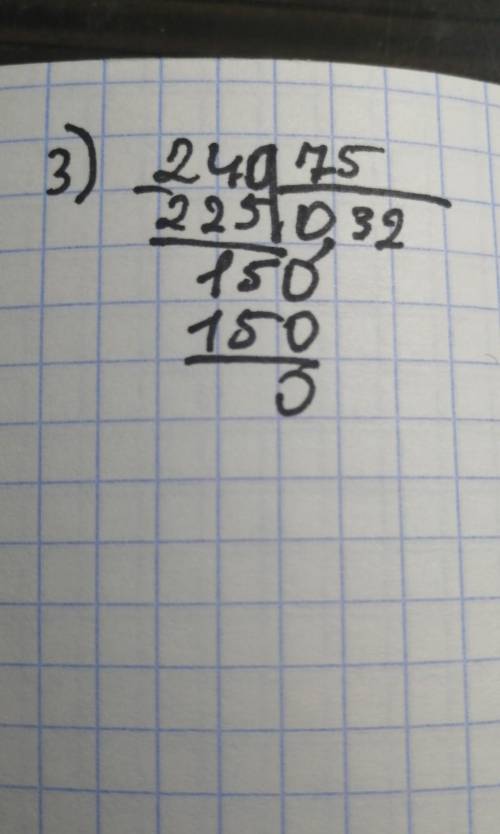 3) 240 75
225 0,32
150
150
0